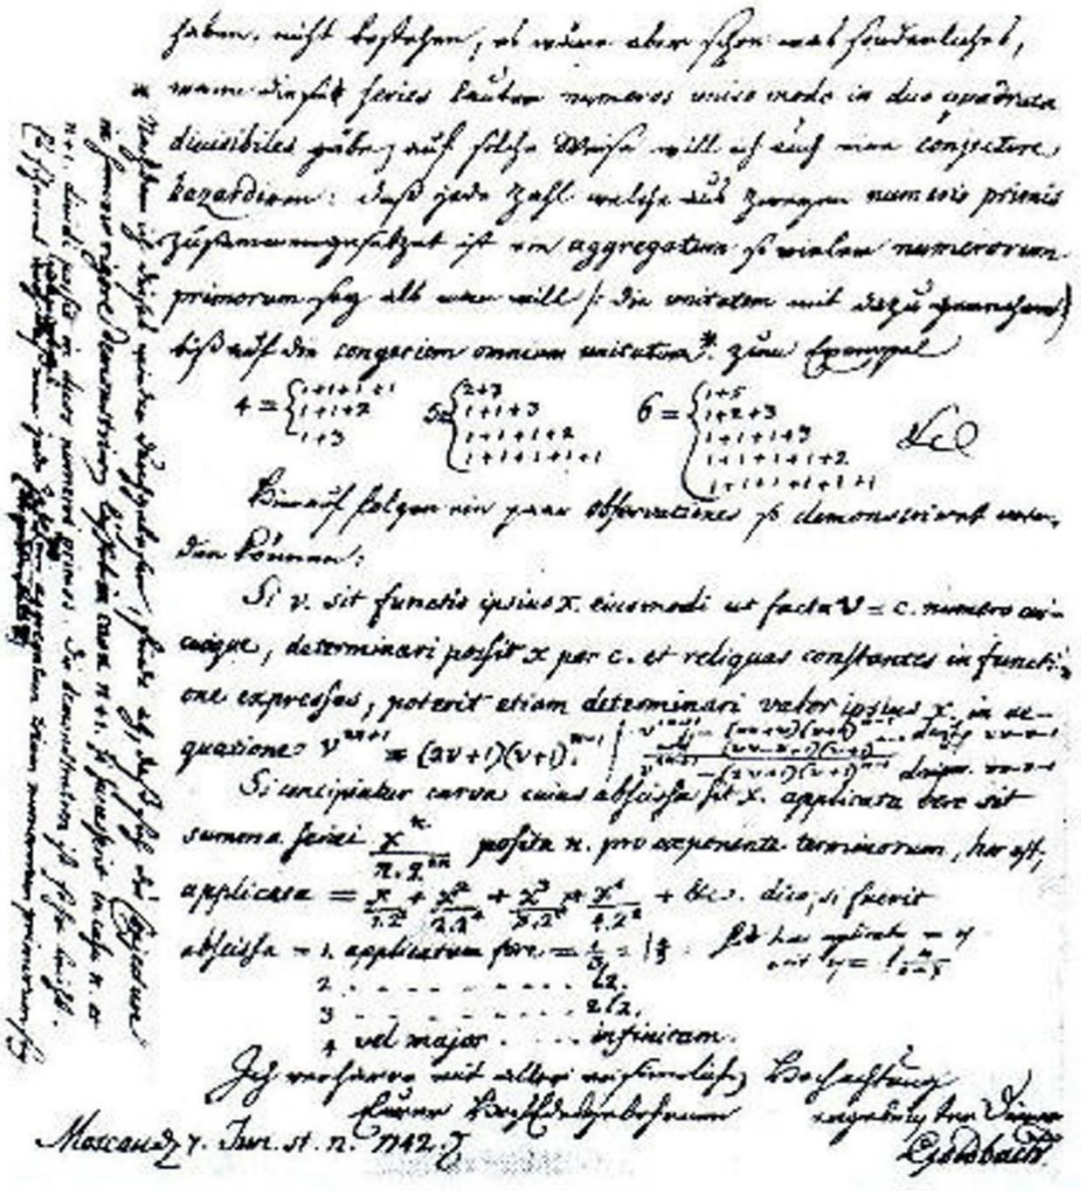 haben, nicht bestehen, es wäre aber schon was sonderliches,
wann diese series lauter numeros unico modo in duo quadrata
divisibiles gäbe, auf solche Weise will ich auch eine conjecture
hazardiren: daß jede Zahl welche aus zweyen numeris primis
zusammengesetzet ist ein aggregatum so vieler numerorum
primorum sey als man will /: die unitatem mit dazu gerechnet)
biß auf die congeriem omnium unitatum*. zum Exempel
4 = { 1+1+1+1
1+1+2
1+3
5 = { 2+3
1+1+3
1+1+1+2
1+1+1+1+1
6 = { 1+5
1+2+3
1+1+1+3
1+1+1+1+2
1+1+1+1+1+1
&c
Hierauf folgen ein paar observationes so demonstriret wer-
den können:
Si v. sit functio ipsius x. eiusmodi ut facta v = c. numero cui-
cunque, determinari possit x per c. et reliquas constantes in functi-
one expressas, poterit etiam determinari valor ipsius x. in ae-
quatione v^{2n+1} = (2v+1)(v+1)^{n-1}.
Si concipiatur curva cuius abscissa sit x. applicata vero sit
summa seriei x^n/(n.2^{2n}) posita n. pro exponente terminorum, hoc est,
applicata = x/1.2² + x²/2.2⁴ + x³/3.2⁶ + x⁴/4.2⁸ + &c. dico, si fuerit
abscissa = 1. applicatam fore = l 4/3
2 . . . . . . . . l2.
3 . . . . . . . . 2l2.
4 vel major . . . . infinitam.
Ich verharre mit aller ersinnlichen Hochachtung
Eurer HochEdelgebohrnen ergebenster Diener
Moscau d. 7. Jun. st. n. 1742. Goldbach.
* Nachdem ich dieses wieder durchgelesen finde ich, daß sich die conjecture
in summo rigore demonstriren lässet in casu n+1. si successerit in casu n. et
n+1. dividi possit in duos numeros primos. Die demonstration ist sehr leicht.
Es scheinet wenigstens, daß eine jede Zahl aggregatum trium numerorum primorum sey